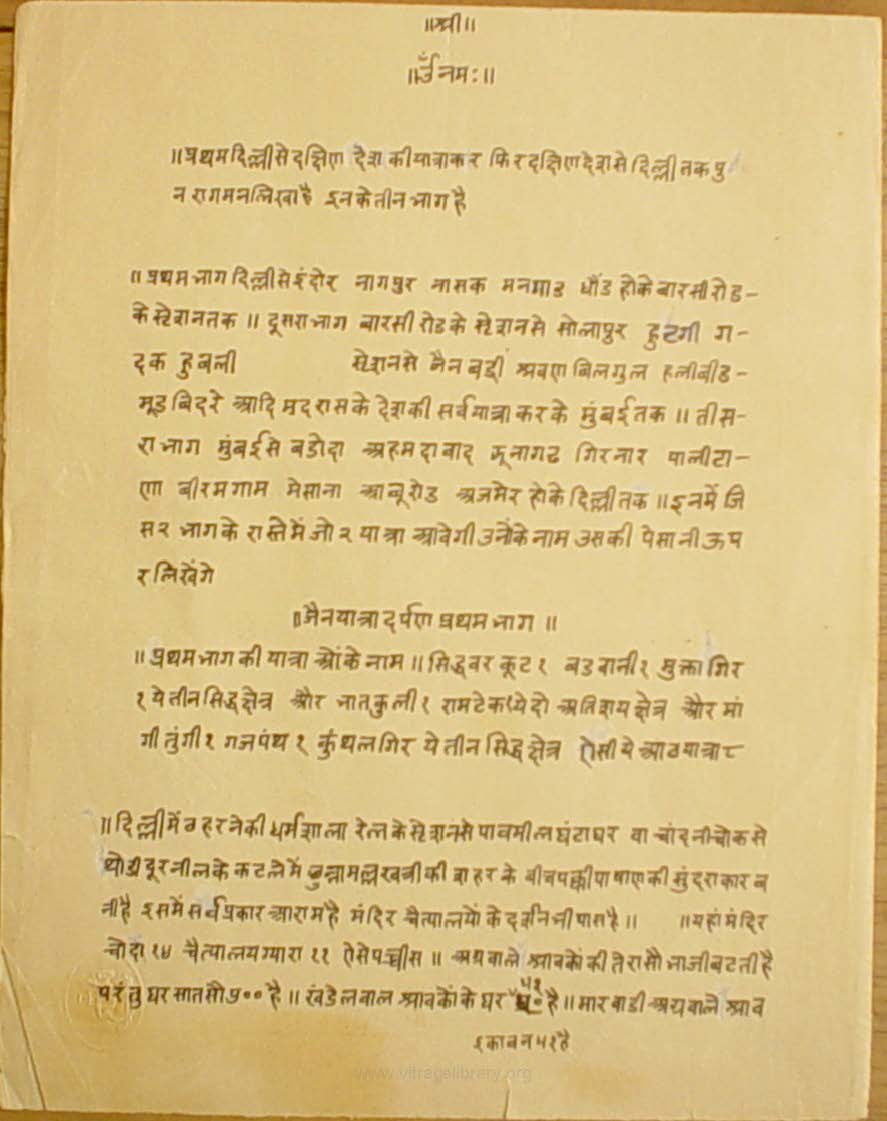 ॥श्री॥
॥ॐ नमः॥
॥प्रथमदिल्लीसे दक्षिण देश की यात्राकर फिर दक्षिण देशसे दिल्ली तक पु
न रागमन लिखा है इनके तीन भाग है
॥ प्रथम भाग दिल्लीसे इंदोर नागपुर नासक मनमाड धौंड होके बारसी रोड-
के स्टेशनतक ॥ दूसरा भाग बारसी रोड के स्टेशनसे सोलापुर हुटगी ग-
दक हुबली स्टेशनसे जैन बद्री श्रवण बिलगुल हलीबीड-
मूड बिदरे आदि मदरास के देशकी सर्व यात्रा कर के मुंबई तक ॥ तीस-
रा भाग मुंबईसे बडोदा अहमदाबाद जूनागढ गिरनार पालीटा-
णा बीरमगाम मेसाना आबूरोड अजमेर होके दिल्ली तक ॥ इनमें जि
स२ भाग के रास्तेमें जो २ यात्रा आवेगी उनोंके नाम उसकी पेसानी ऊप
र लिखेंगे
॥जैनयात्रादर्पण प्रथम भाग ॥
॥ प्रथम भाग की यात्रा ओं के नाम ॥ सिद्धवर कूट १ बडवानी१ मुक्तागिर
१ ये तीन सिद्धक्षेत्र और भातकुली १ रामटेक१ये दो अतिशय क्षेत्र और मां
गी तुंगी१ गजपंथ १ कुंथलगिर ये तीन सिद्धक्षेत्र ऐसी ये आठ यात्रा ८
॥ दिल्ली में ठहरने की धर्मशाला रेल के स्टेशनसे पावमील घंटाघर वा चांदनीचोक से
थोडी दूर नील के कटले में बुन्नामल्ल खत्री की शहर के बीच पक्की पाषाण की सुंदराकार ब
नी है इसमें सर्व प्रकार आराम है मंदिर चैत्यालयों के दर्शन भी पास है ॥ ॥यहां मंदिर
चोदा १४ चैत्यालय ग्यारा ११ ऐसे पच्चीस ॥ अग्रवाले श्रावकों की तेरासौ भाजी बटती है
परंतु घर सातसौ ७०० है ॥ खंडेलवाल श्रावकों के घर ५१ है ॥ मारवाडी अग्रवाले श्राव
इकावन ५१ है
www.vitragelibrary.org